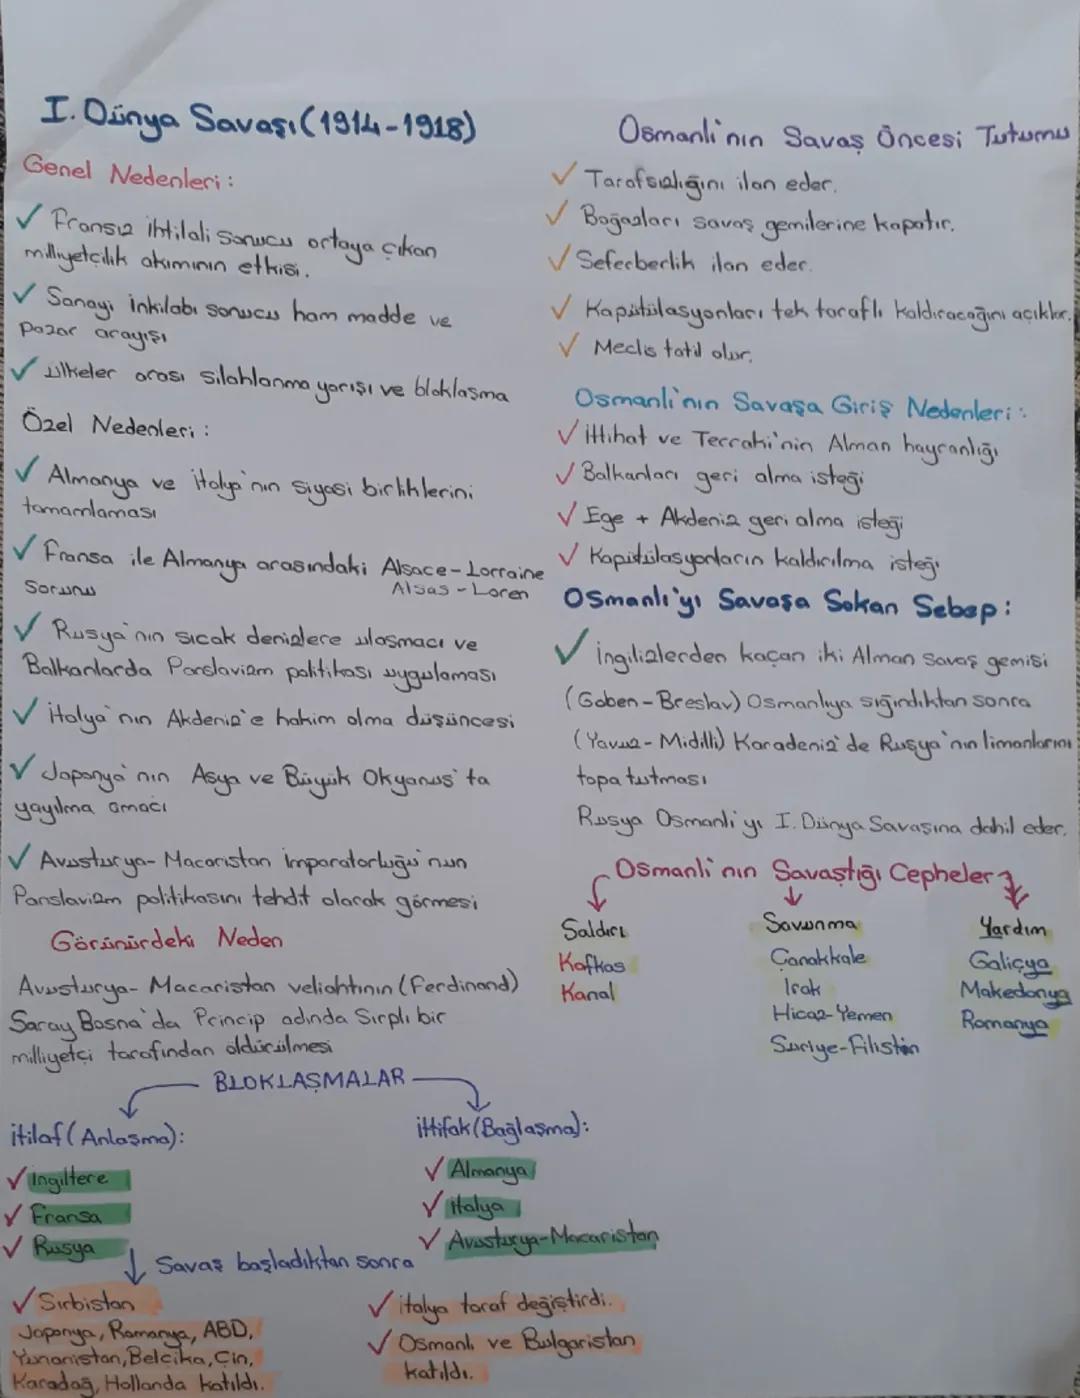 I. Dünya Savaşı (1914-1918)
Genel Nedenleri:
✓ Fransız ihtilali sonucu ortaya çıkan
milliyetçilik akımının etkisi.
✓ Sanayi inkılabı sonucu ham madde ve
pazar arayışı
✓ ülkeler arası silahlanma yarışı ve bloklaşma
Özel Nedenleri:
✓ Almanya ve italya'nın siyasi birliklerini
tamamlaması
✓ fransa ile Almanya arasındaki Alsace-Lorraine
Sorunu Alsas-Loren
✓ Rusya'nın sıcak denizlere ulaşmacı ve
Balkanlarda Panslavizm politikası uygulaması
✓ italya'nın Akdeniz'e hakim olma düşüncesi
✓ Japonya'nın Asya ve Büyük Okyanus'ta
yayılma amacı
✓ Avusturya-Macaristan imparatorluğu'nun
Panslavizm politikasını tehdit olarak görmesi
Görünürdeki Neden
Avusturya-Macaristan veliahtının (Ferdinand)
Saray Bosna'da Princip adında Sırplı bir
milliyetçi tarafından öldürülmesi
BLOKLAŞMALAR
itilaf (Anlaşma):
✓ ingiltere
✓ Fransa
✓ Rusya
Savaş başladıktan sonra
✓ Sırbistan
Japonya, Romanya, ABD,
Yunanistan, Belçika, Çin,
Karadağ, Hollanda katıldı.
ittifak (Bağlaşma):
✓ Almanya
✓ italya
✓ Avusturya-Macaristan
✓ italya taraf değiştirdi.
✓ Osmanlı ve Bulgaristan
katıldı.
Osmanlı'nın Savaş Öncesi Tutumu
✓ Tarafsızlığını ilan eder.
✓ Boğazları savaş gemilerine kapatır.
✓ Seferberlik ilan eder.
✓ Kapitülasyonları tek taraflı kaldıracağını açıklar.
✓ Meclis tatil olur.
Osmanlı'nın Savaşa Giriş Nedenleri:
✓ ittihat ve Terraki'nin Alman hayranlığı
✓ Balkanları geri alma isteği
✓ Ege + Akdeniz geri alma isteği
✓ Kapitülasyonların kaldırılma isteği
Osmanlı'yı Savaşa Sokan Sebep:
✓ ingilizlerden kaçan iki Alman savaş gemisi
(Goben-Breslav) Osmanlıya sığındıktan sonra
(Yavuz-Midilli) Karadeniz'de Rusya'nın limanlarını
topa tutması
Rusya Osmanlı'yı I. Dünya Savaşına dahil eder.
Osmanlı'nın Savaştığı Cepheler
Saldırı
Kafkas
Kanal
Savunma
Çanakkale
Irak
Hicaz-Yemen
Suriye-Filistin
Yardım
Galiçya
Makedonya
Romanya